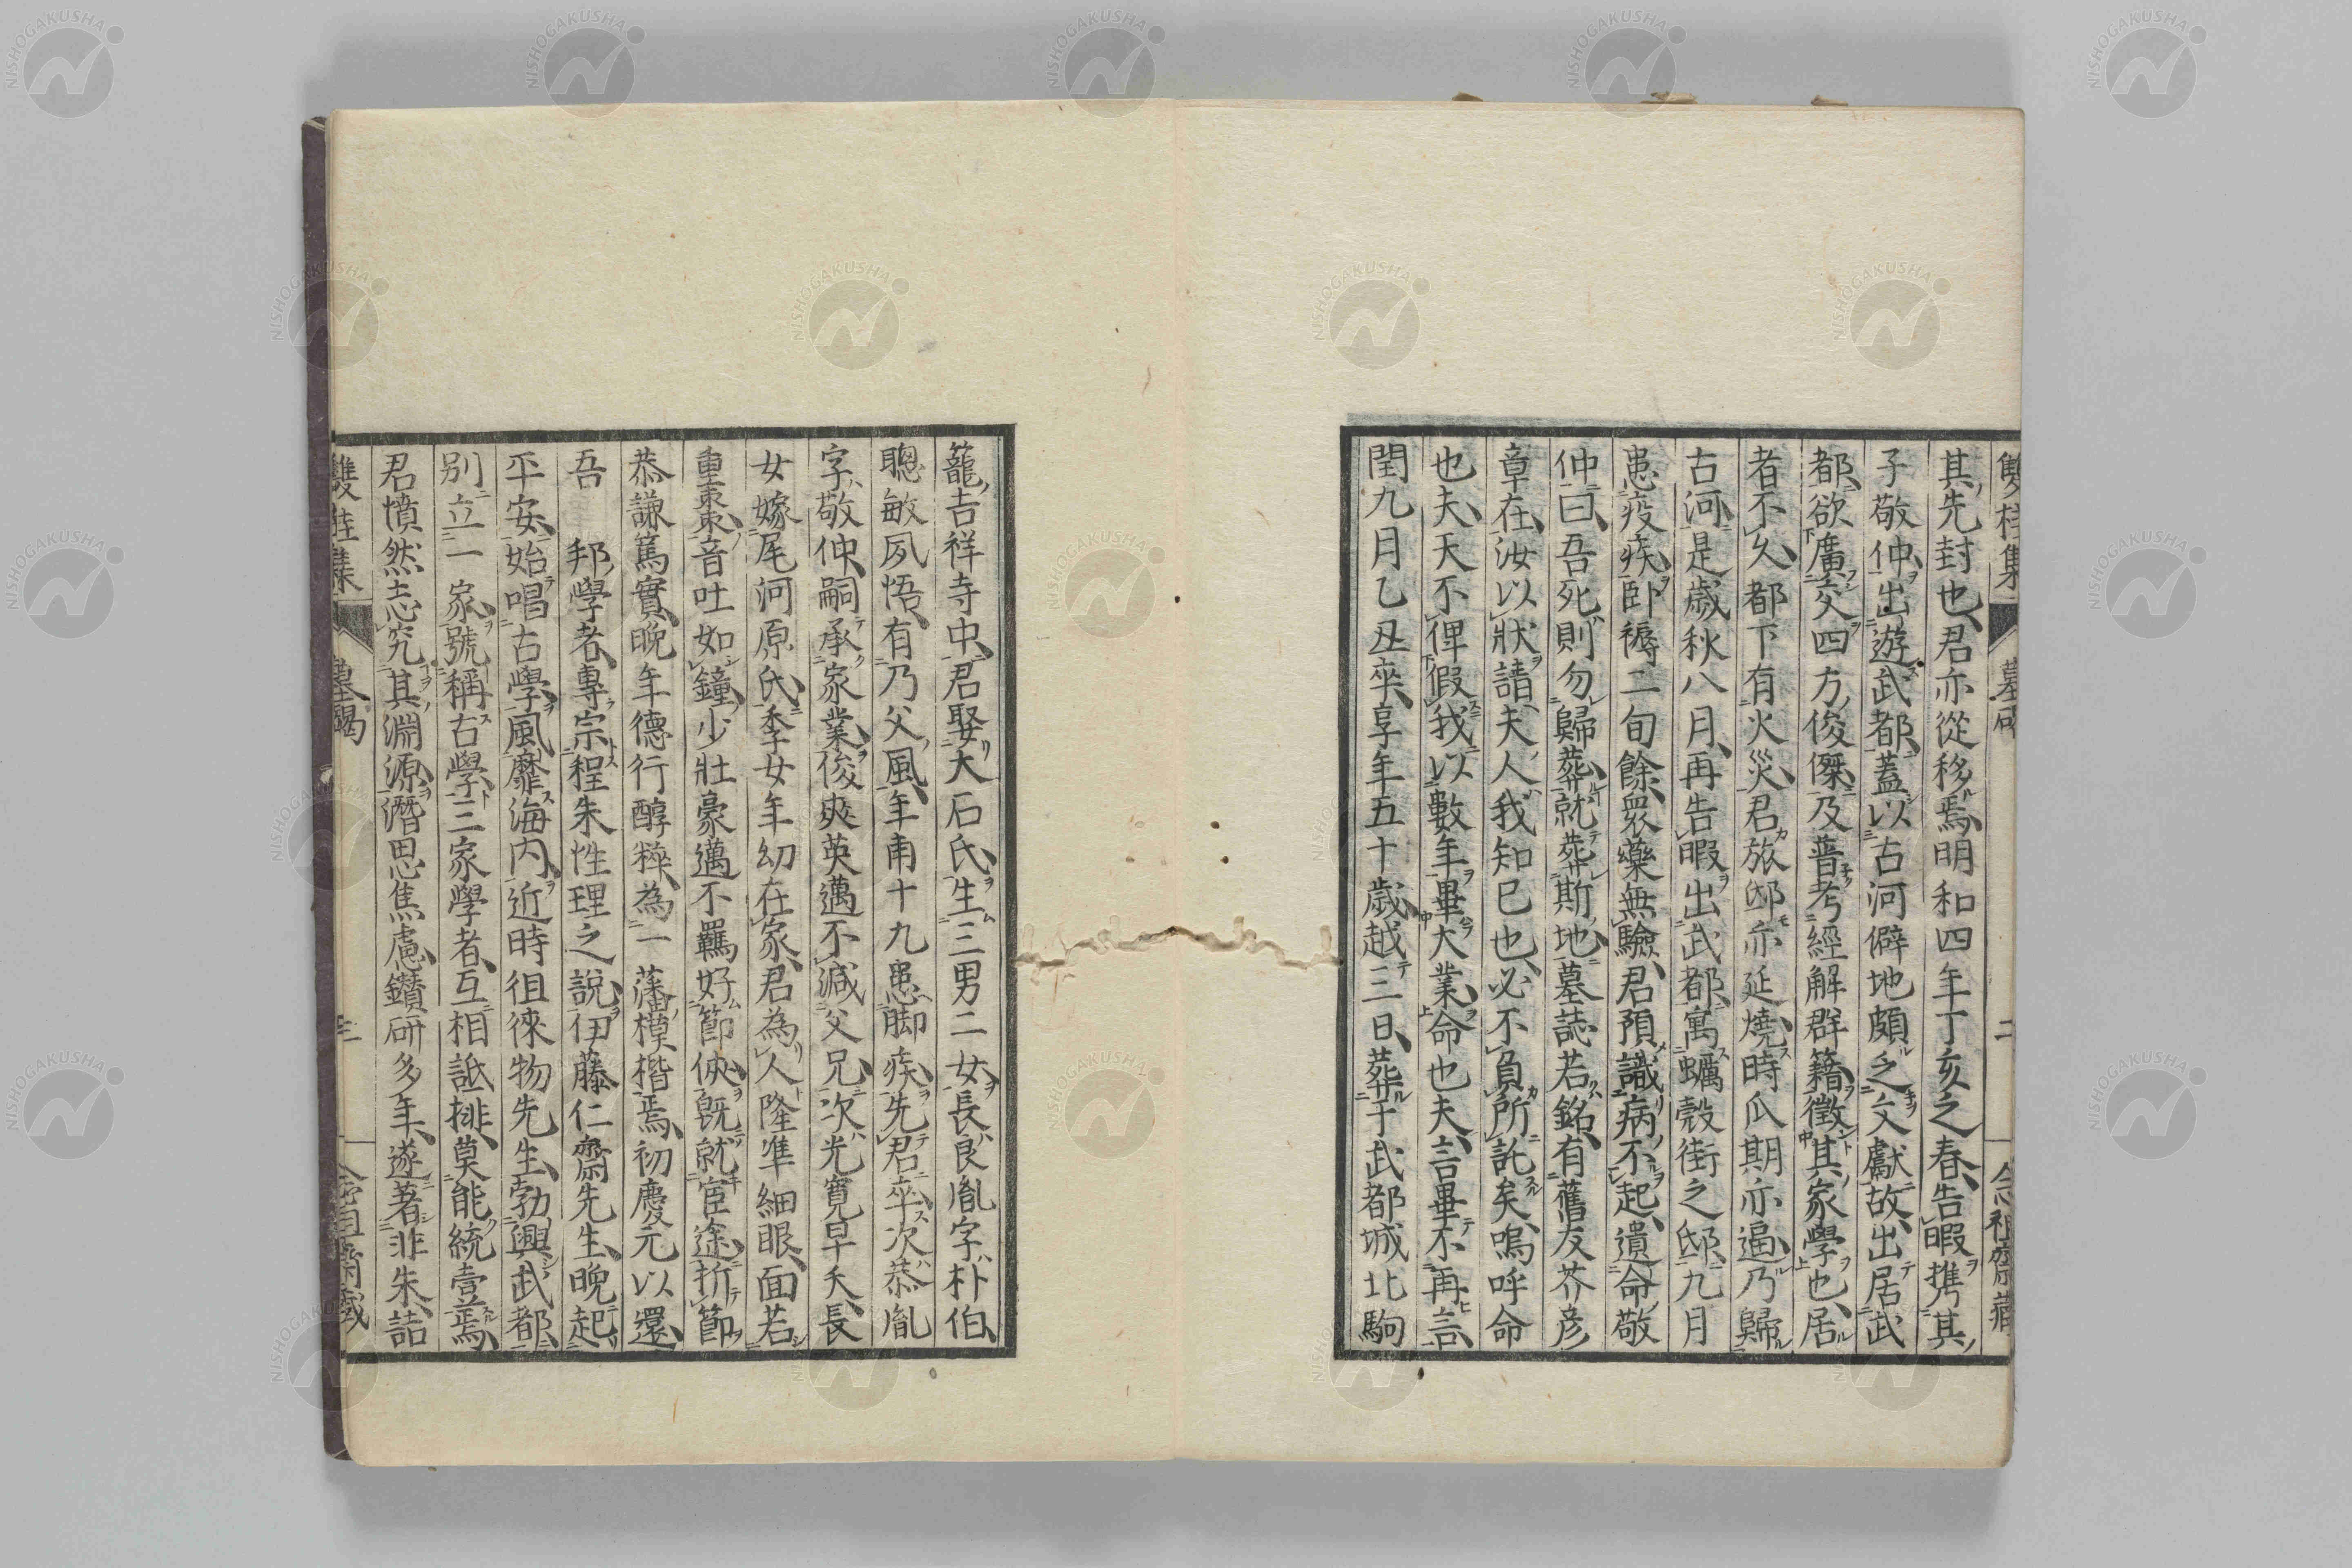 雙桂集 墓碣 二 念祖齋藏
其先封也君亦從移焉明和四年丁亥之春告暇携其
子敬仲出遊武都蓋以古河僻地頗乏文獻故出居武
都欲廣交四方俊傑及普考經解群籍徵其家學也居
者不久都下有火災君旅邸亦延燒時瓜期亦逼乃歸
古河是歲秋八月再告暇出武都寓蠣殼街之邸九月
患疫疾臥褥二旬餘衆藥無驗君預識病不起遺命敬
仲曰吾死則勿歸葬就葬斯地墓誌若銘有舊友芥彦
章在汝以狀請夫人我知已也必不負所託矣嗚呼命
也夫天不俾假我以數年畢大業命也夫言畢不再言
閏九月乙丑卒享年五十歲越三日葬于武都城北駒
籠吉祥寺中君娶大石氏生三男二女長良胤字朴伯
聰敏夙悟有乃父風年甫十九患脚疾先君卒次恭胤
字敬仲嗣承家業俊爽英邁不減父兄次光寬早夭長
女嫁尾河原氏季女年幼在家君為人隆準細眼面若
重棗音吐如鐘少壯豪邁不羈好節俠既就宦途折節
恭謙篤實晚年德行醇粹為一藩模楷焉初慶元以還
吾 邦學者專宗程朱性理之說伊藤仁齋先生晚起
平安始唱古學風靡海内近時徂徠物先生勃興武都
別立一家號稱古學三家學者互相詆排莫能統壹焉
君憤然志究其淵源潛思焦慮鑽研多年遂著非朱詰
雙桂集 墓碣 三 念祖齋藏